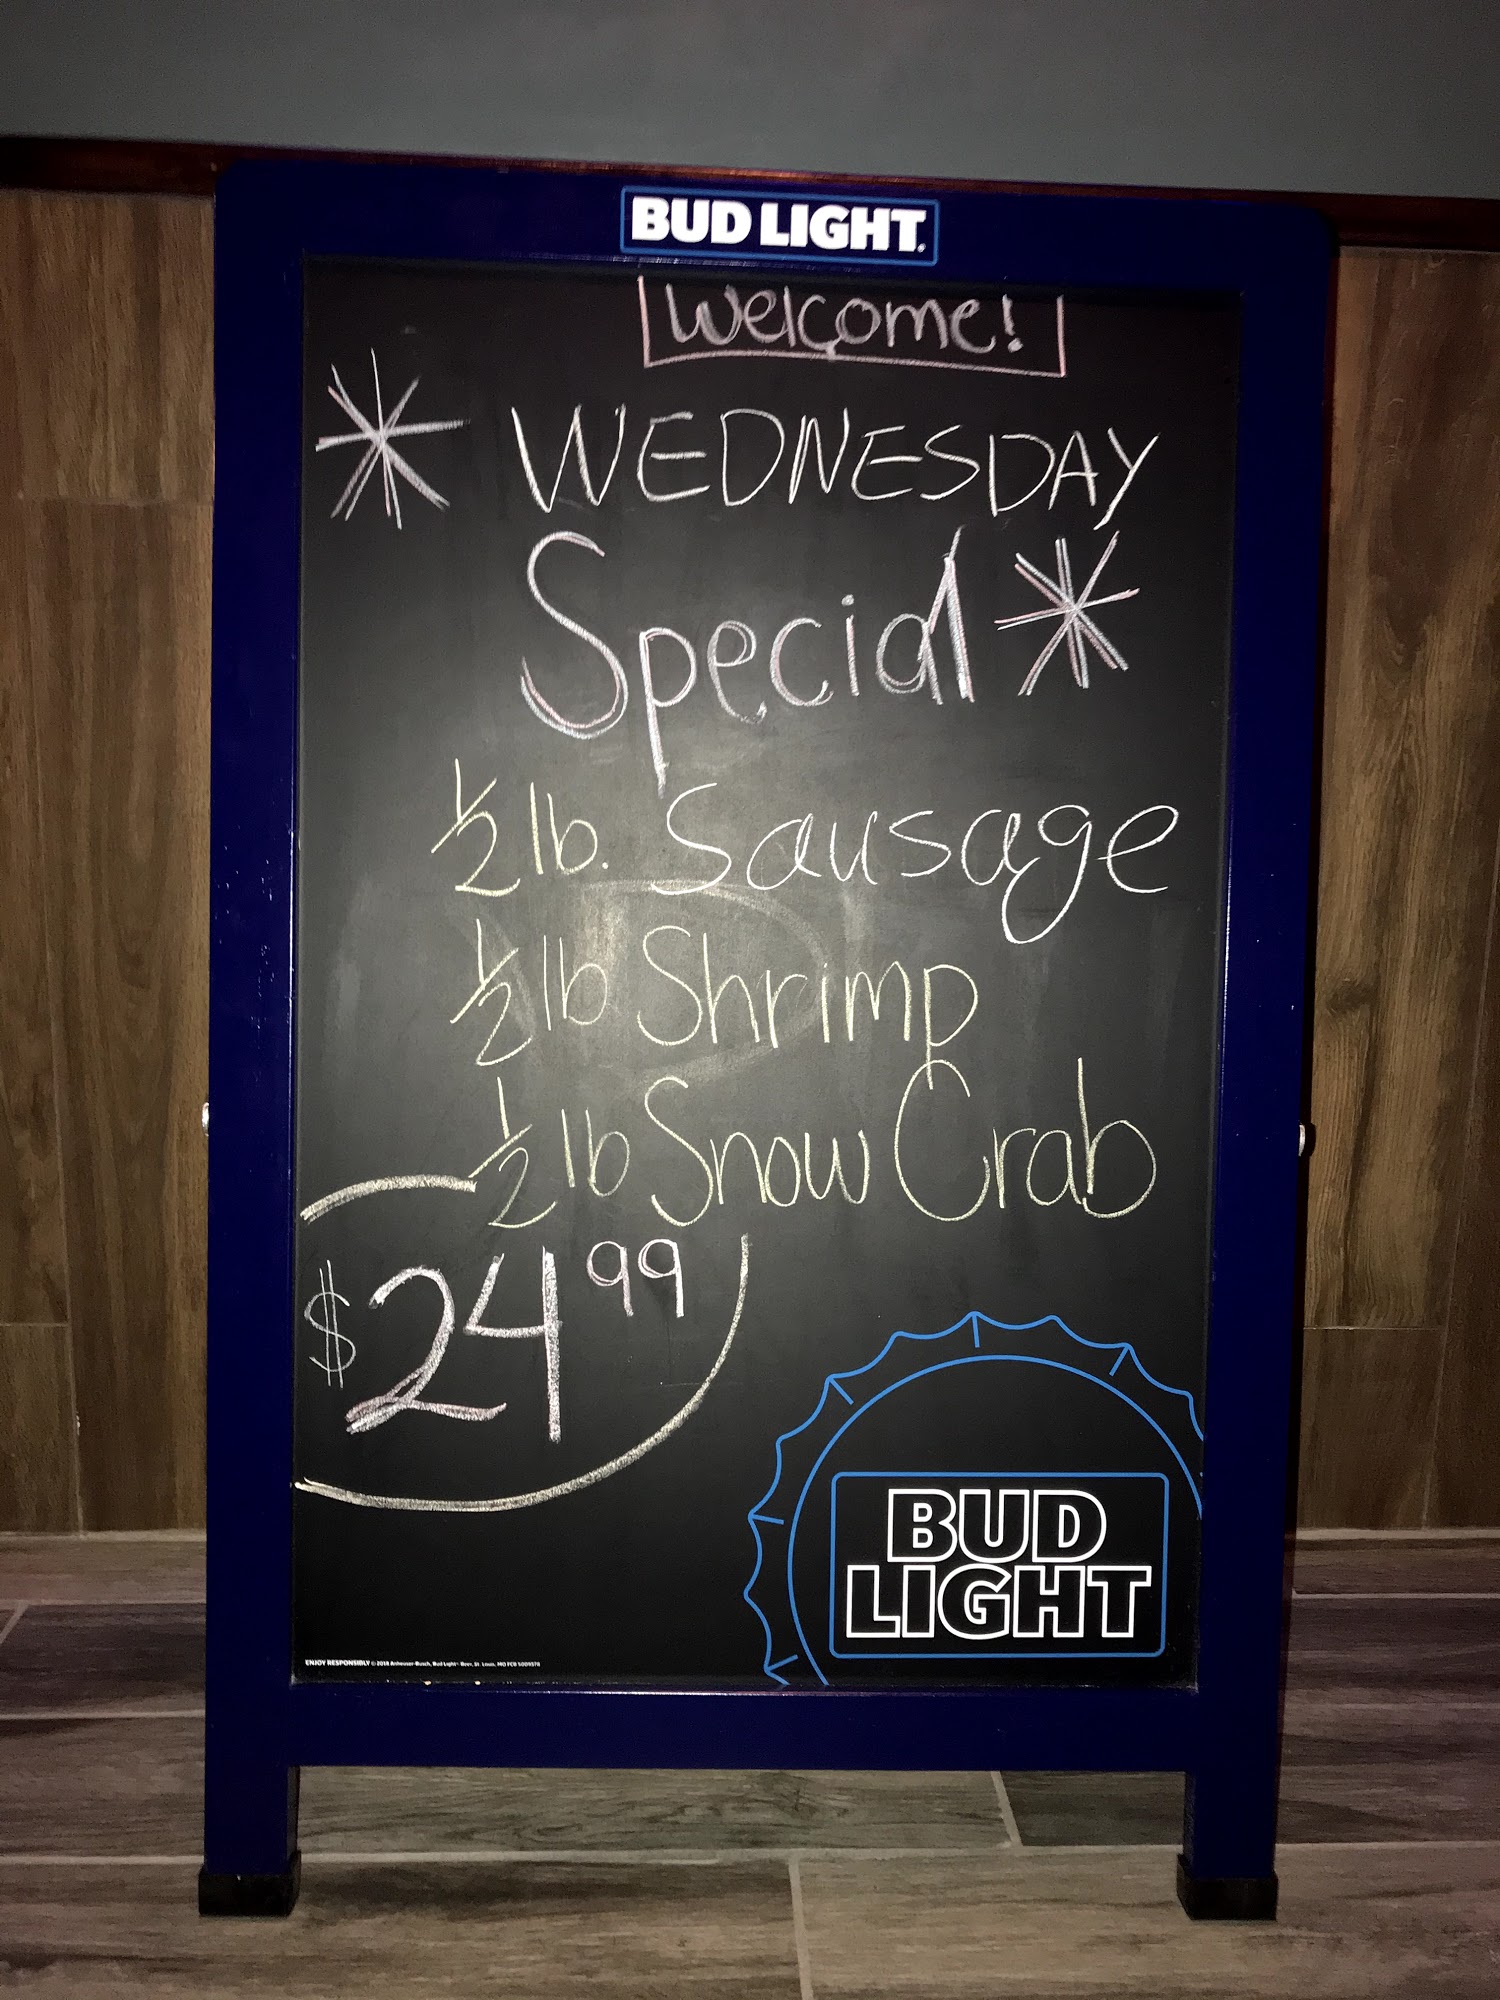 BUD LIGHT.
Welcome!
* WEDNESDAY
Special *
1/2 lb. Sausage
1/2 lb Shrimp
1/2 lb Snow Crab
$24 99
BUD
LIGHT
ENJOY RESPONSIBLY © 2018 Anheuser-Busch, Bud Light® Beer, St. Louis, MO